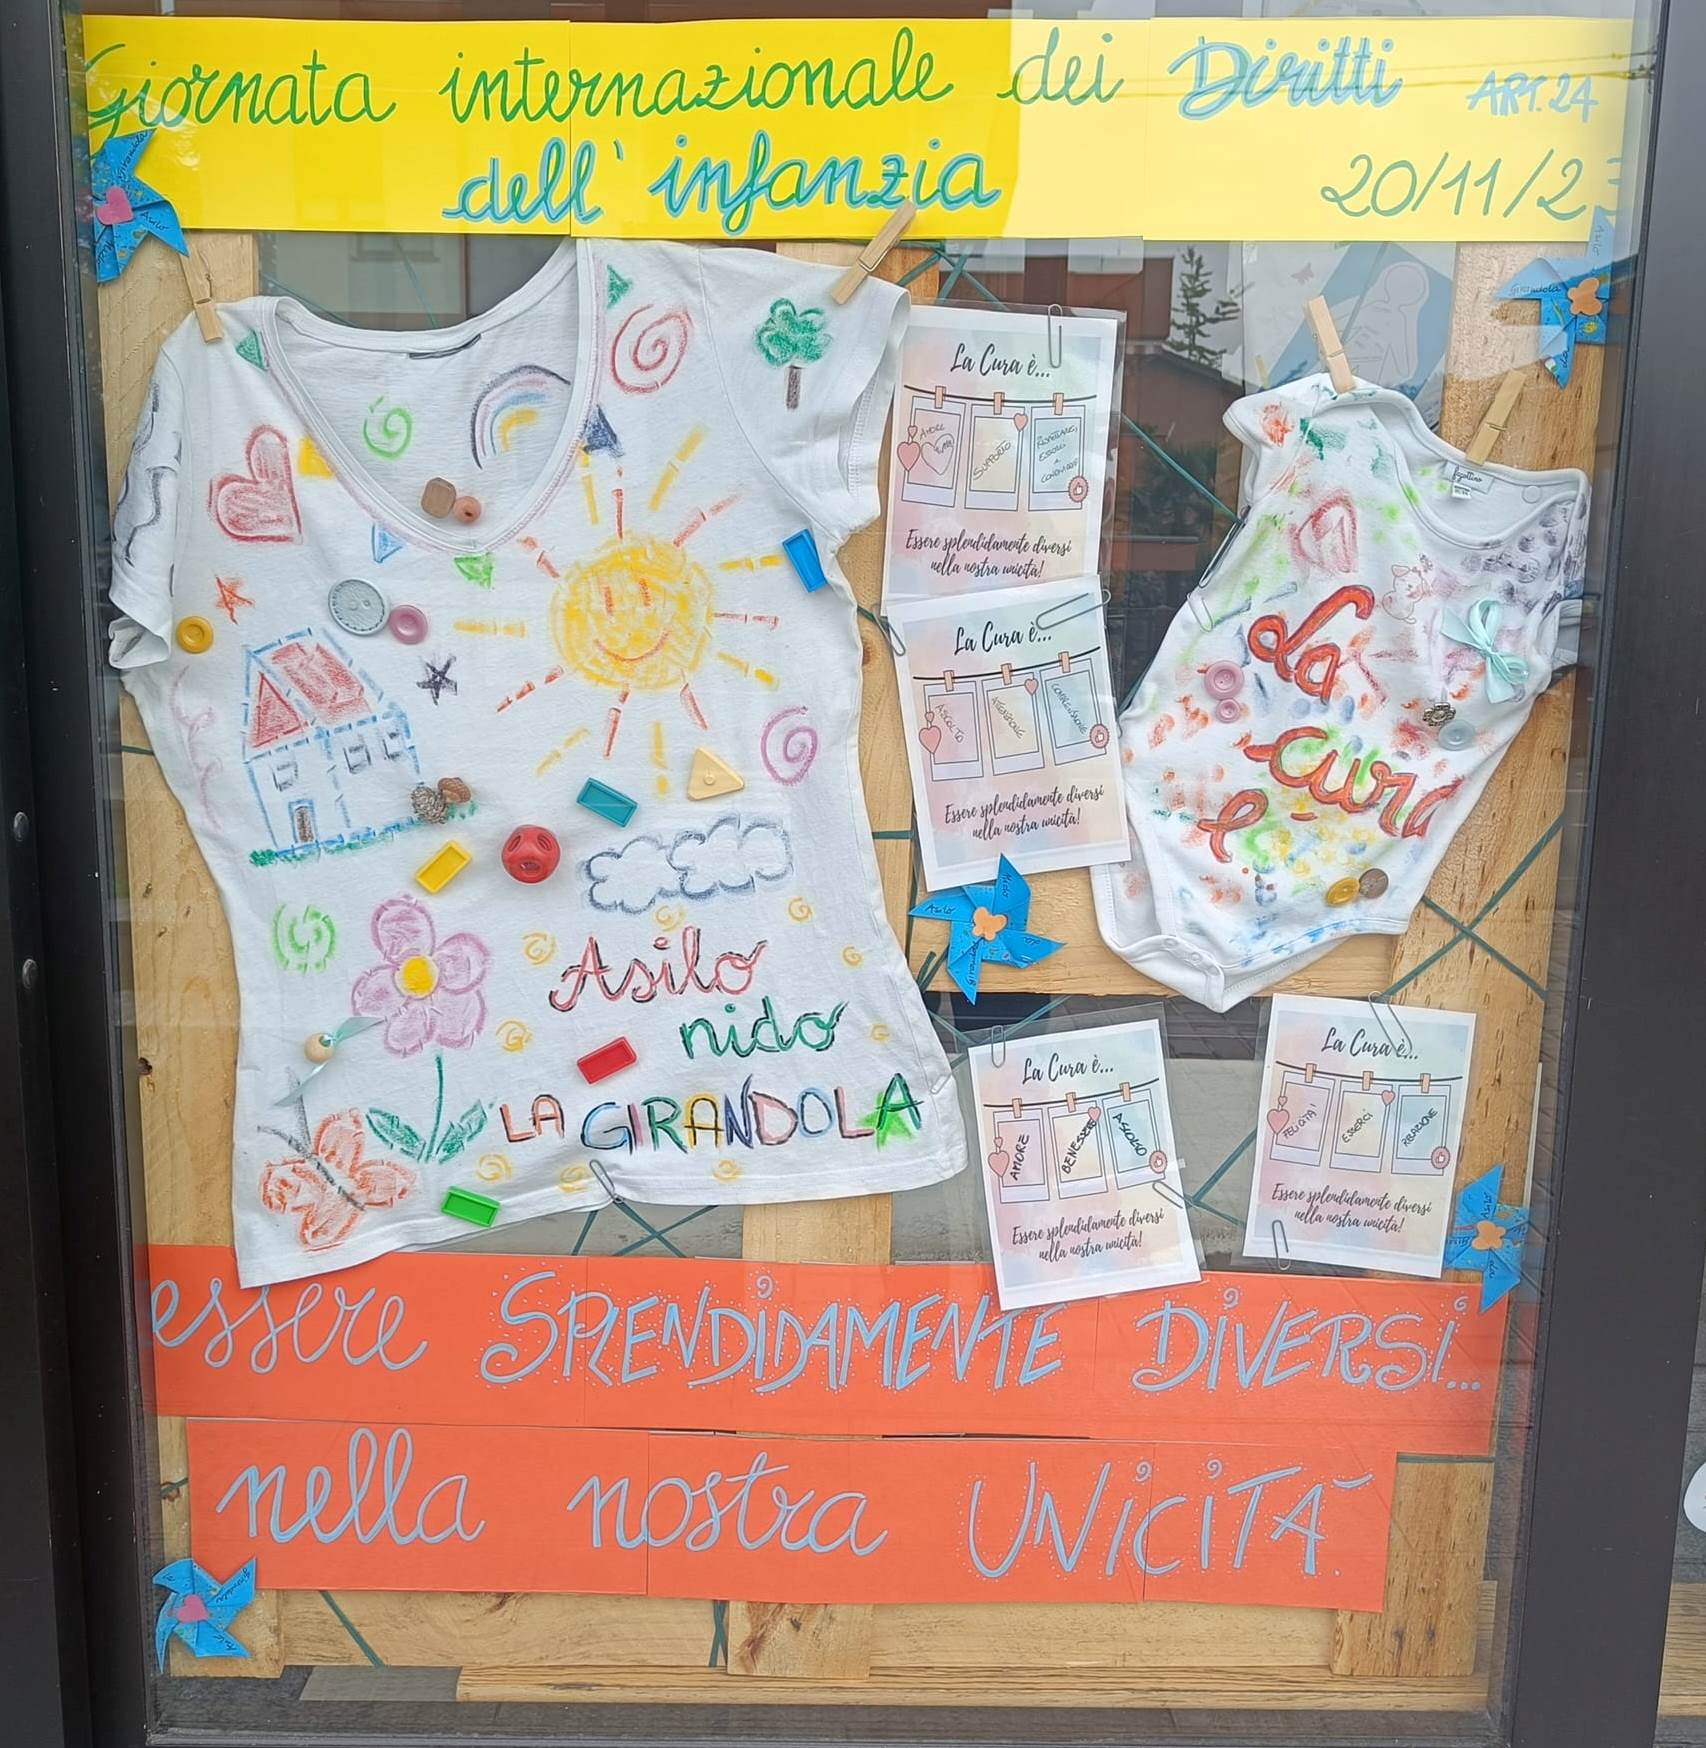 Giornata internazionale dei Diritti ART. 24
dell' infanzia
20/11/23
La Cura è...
AMORE
SUPPORTO
RISPETTARE,
ESSERCI
E
CONDIVIDERE
Essere splendidamente diversi
nella nostra unicità!
La Cura è...
ASCOLTO
ATTENZIONE
COMPRENSIONE
Essere splendidamente diversi
nella nostra unicità!
La
cura
è
Asilo
nido
LA GIRANDOLA
Asilo
Nido
La
Girandola
La Cura è...
AMORE
BENESSERE
ASCOLTO
Essere splendidamente diversi
nella nostra unicità!
La Cura è...
FELICITA'
ESSERCI
RELAZIONE
Essere splendidamente diversi
nella nostra unicità!
essere SPLENDIDAMENTE DIVERSI...
nella nostra UNICITÀ